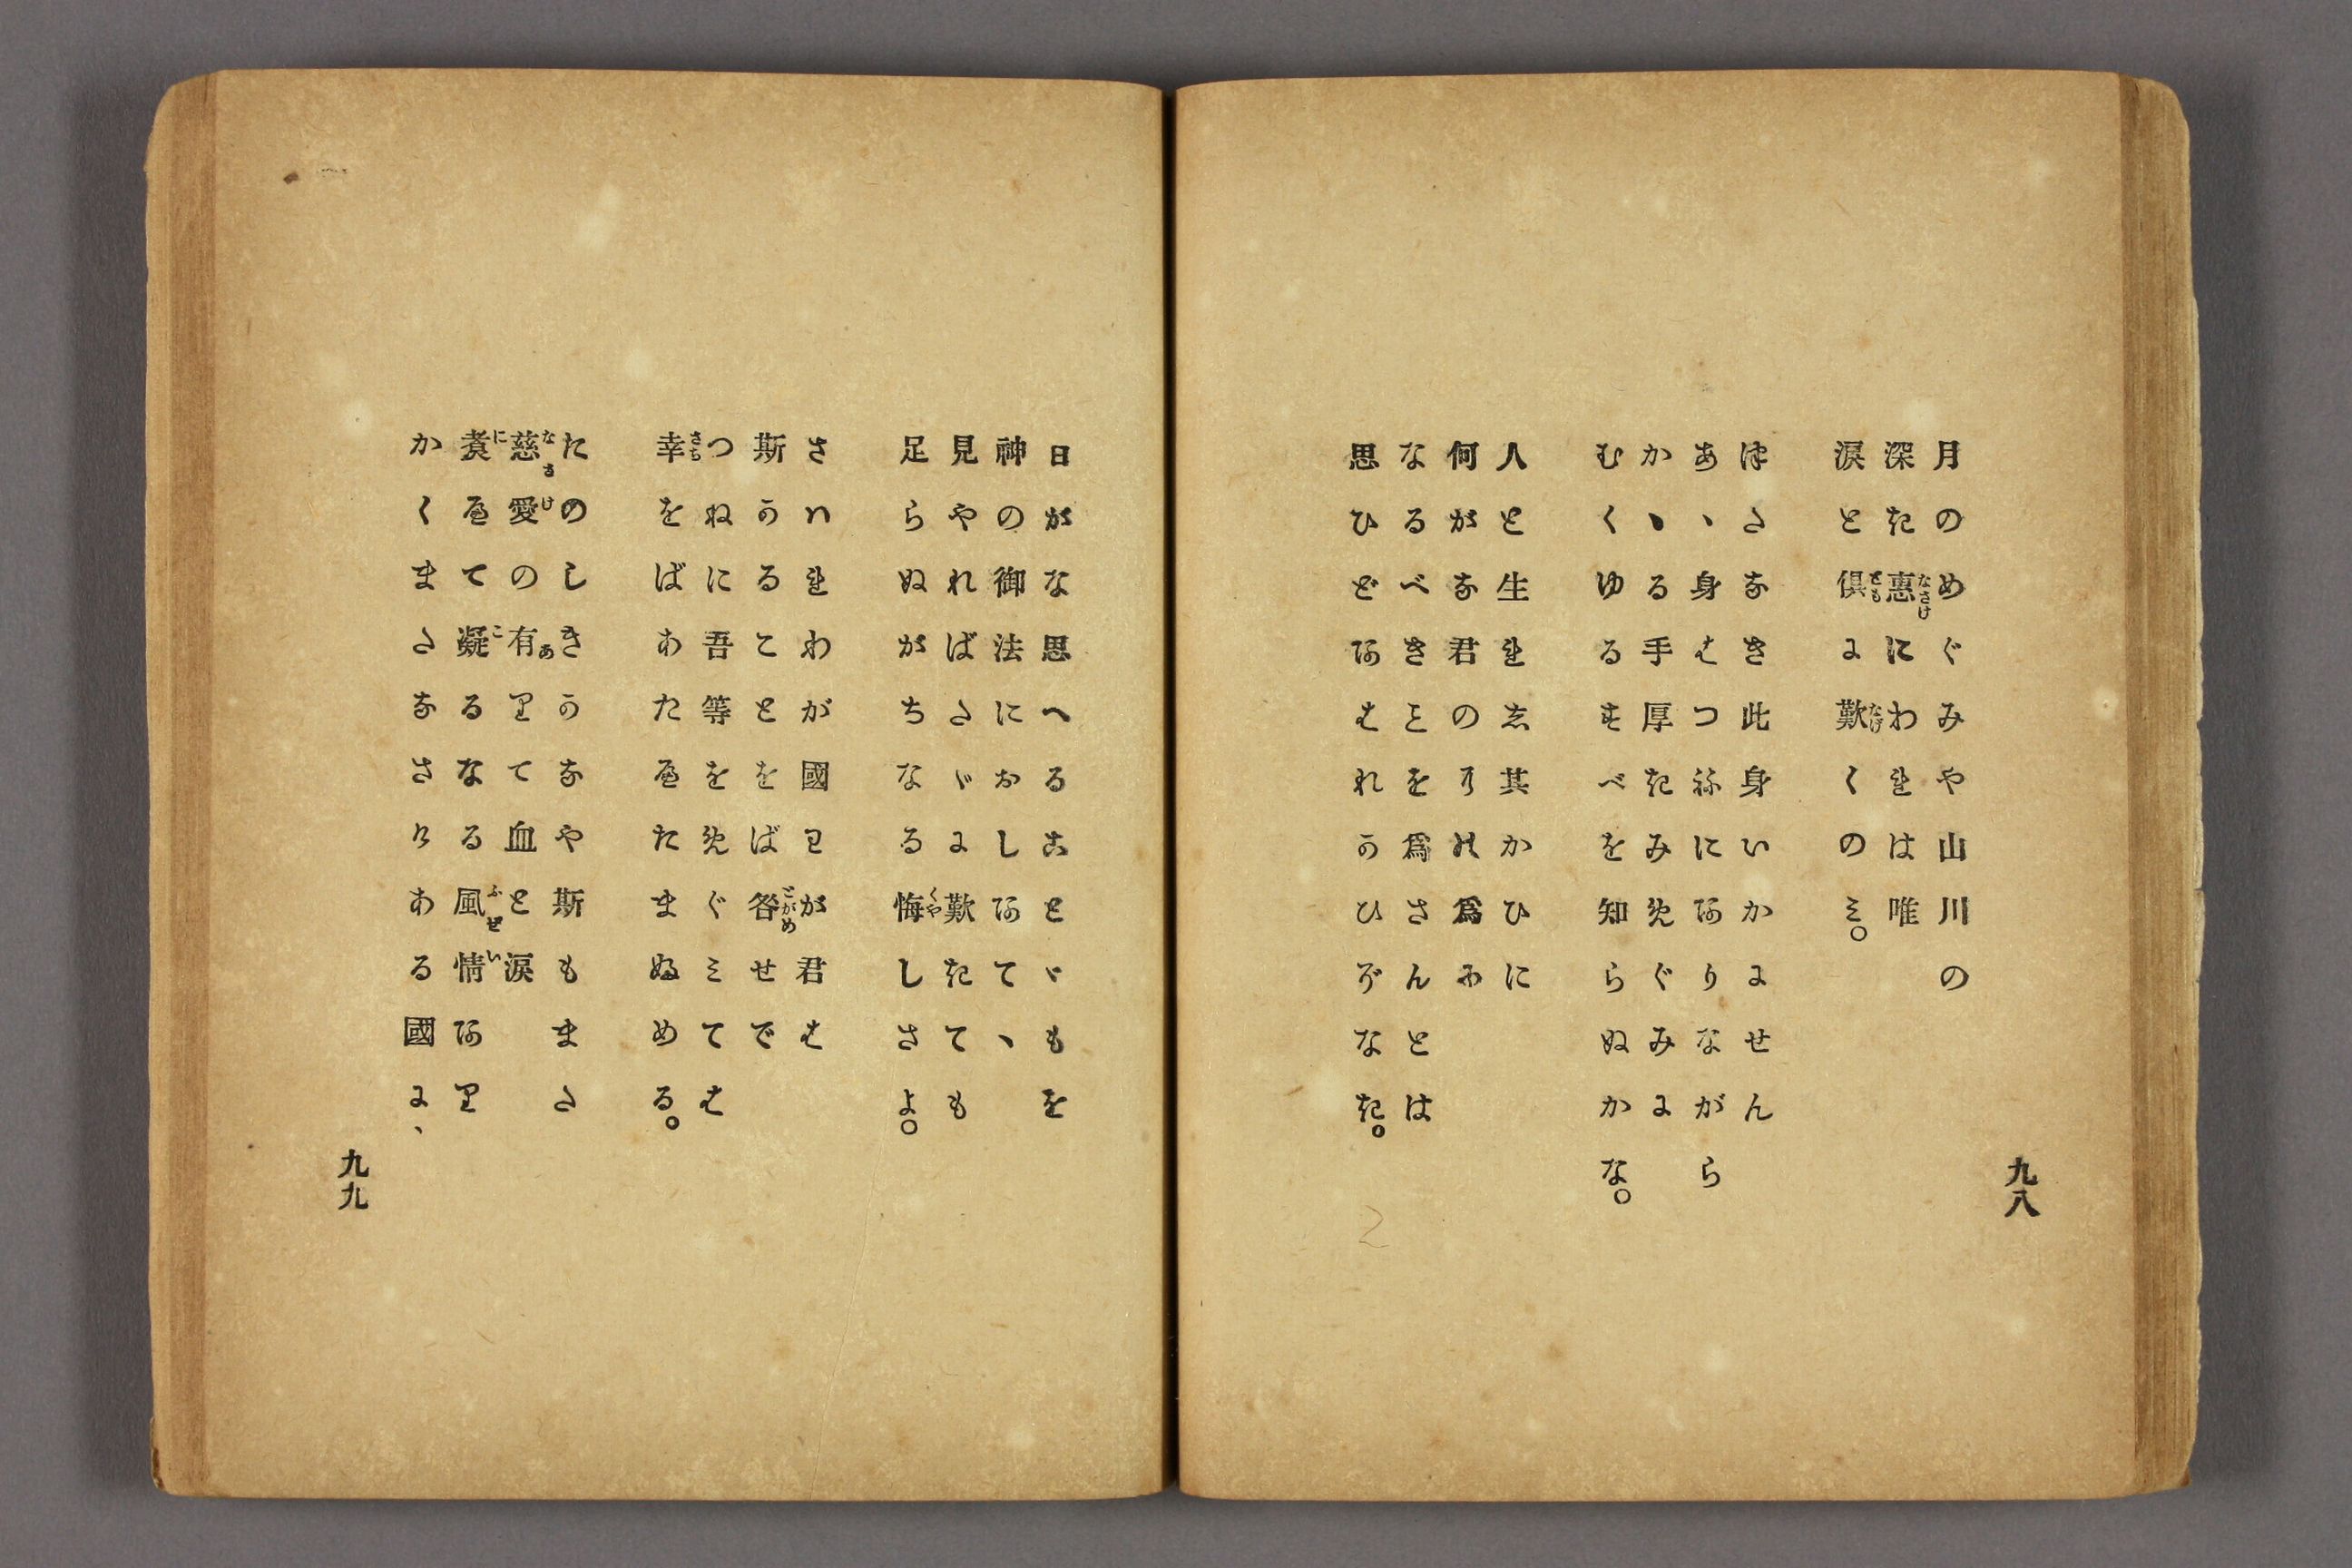 九八
月のめぐみや山川の
深き惠にわれは唯
涙と倶に歎くのミ。
つたなき此身いかにせん
あゝ身はつねにありながら
かゝる手厚きみめぐみに
むくゆるすべを知らぬかな。
人と生れし其かひに
何がな君の爲に
なるべきことを爲さんとは
思ひどあはれかひぞなき。
日がな思へることゞもを
神の御法におしあてゝ
見やればたゞに歎きても
足らぬがちなる悔しさよ。
さハれわが國わが君は
斯かることをば咎めせで
つねに吾等をめぐミては
幸をばあたへたまふめる。
たのしきかなや斯もまた
慈愛の有りて血と涙
煮へて凝るなる風情あり
かくまたなさけある國に、
九九